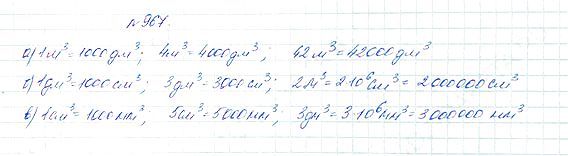 №967.
а) 1м³=1000дм³; 4м³=4000дм³; 42м³=42000дм³
б) 1дм³=1000см³; 3дм³=3000см³; 2м³=2·10⁶см³=2000000см³
в) 1см³=1000мм³; 5см³=5000мм³; 3дм³=3·10⁶мм³=3000000 мм³